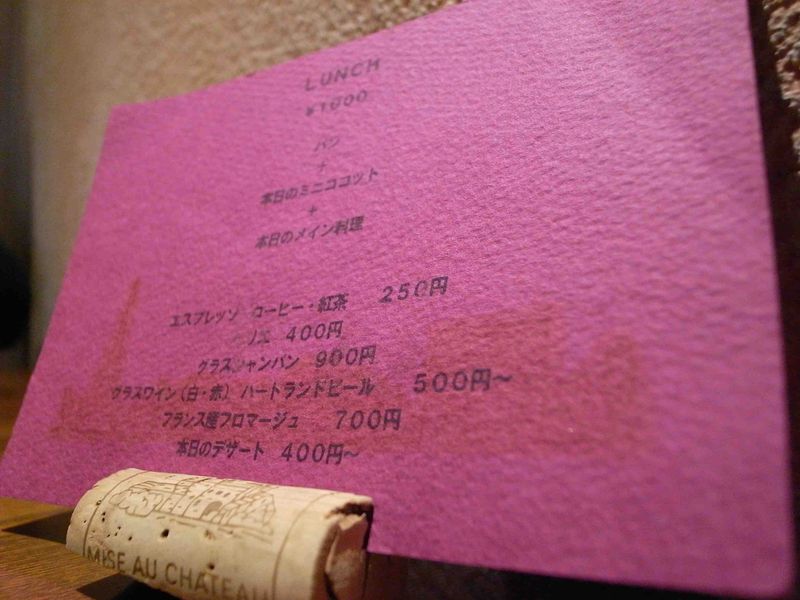 LUNCH
¥1000
パン
+
本日のミニココット
+
本日のメイン料理
エスプレッソ コーヒー・紅茶 250円
400円
グラスシャンパン 900円
グラスワイン(白・赤) ハートランドビール 500円～
フランス産フロマージュ 700円
本日のデザート 400円～
MISE AU CHATEAU